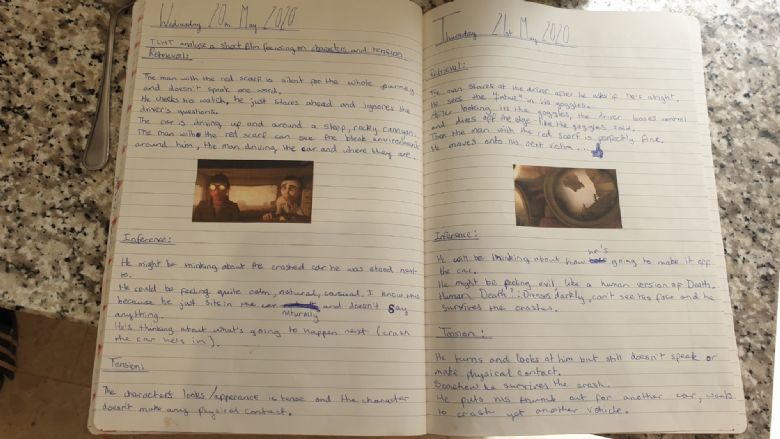 Wednesday 20th May 2020
TLHT analyse a short film focusing on characters and tension
Retrieval:
The man with the red scarf is silent for the whole journey
and doesn't speak one word.
He checks his watch, he just stares ahead and ignores the
driver's questions.
The car is driving up and around a steep, rocky canyon.
The man with the red scarf can see the bleak environment
around him, the man driving the car and where they are.
Inference:
He might be thinking about the crashed car he was stood next
to.
He could be feeling quite calm, natural, casual. I know this
because he just sits in the car naturally and doesn't say
anything.
He's thinking about what's going to happen next (crash
the car he's in).
Tension:
The characters looks/apperence is tense and the character
doesn't make any physical contact.
Thursday 21st May 2020
Retrieval:
The man stares at the driver after he asks if he's alright.
He sees the "future" in his goggles.
After looking in the goggles, the driver loses control
and dives off the edge like the goggles said.
Then the man with the red scarf is perfectly fine.
He moves onto his next victim...
Inference:
He will be thinking about how he's going to make it off
the car.
He might be feeling evil, like a human version of Death.
Human Death? : Dresses darkly, can't see his face and he
survives the crashes.
Tension:
He turns and looks at him but still doesn't speak or
make physical contact.
Somehow he survives the crash.
He puts his thumb out for another car, wants
to crash yet another vehicle.